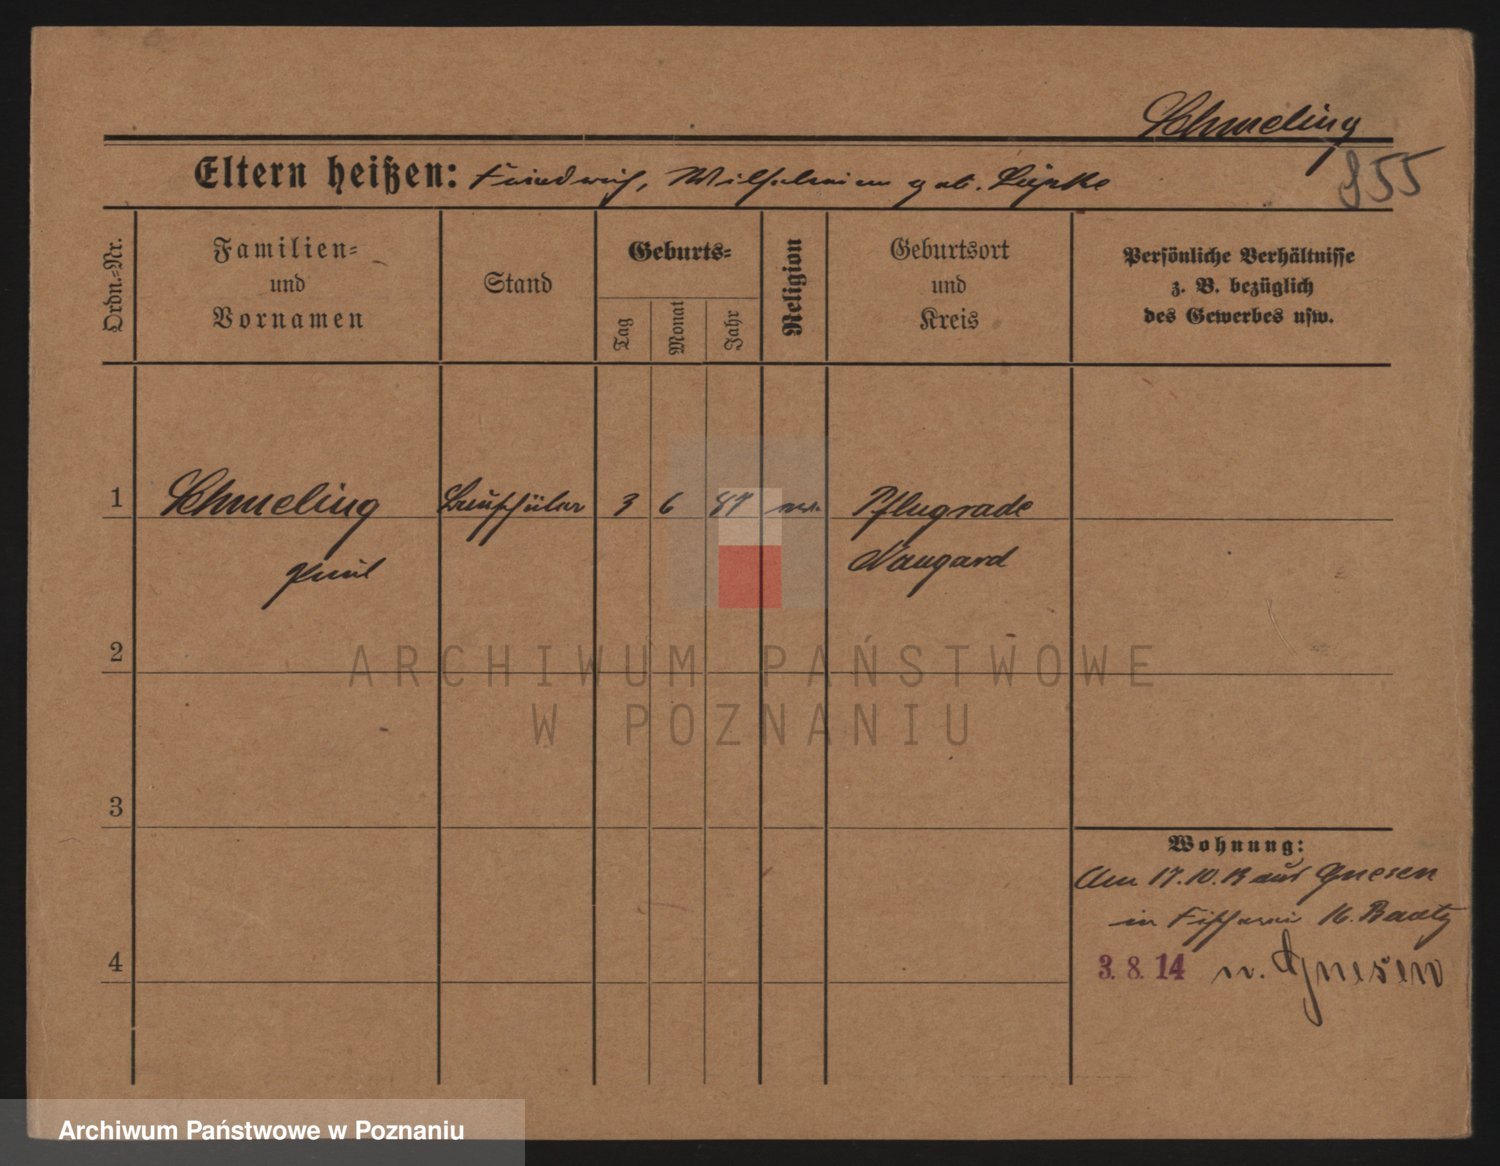 Schmeling
855
Eltern heißen: Friedrich, Wilhelmine geb. Lüpke
Ordn.-Nr.
Familien-
und
Vornamen
Stand
Geburts-
Tag
Monat
Jahr
Religion
Geburtsort
und
Kreis
Persönliche Verhältnisse
z. B. bezüglich
des Gewerbes usw.
1 Schmeling 3 6 87 ev. Pflugrade
Paul Naugard
2
ARCHIWUM PAŃSTWOWE
W POZNANIU
3
Wohnung:
Am 17.10.13 aus Gnesen
in Fischerei 16. Baatz
4
3. 8. 14 n. Gnesen
Archiwum Państwowe w Poznaniu